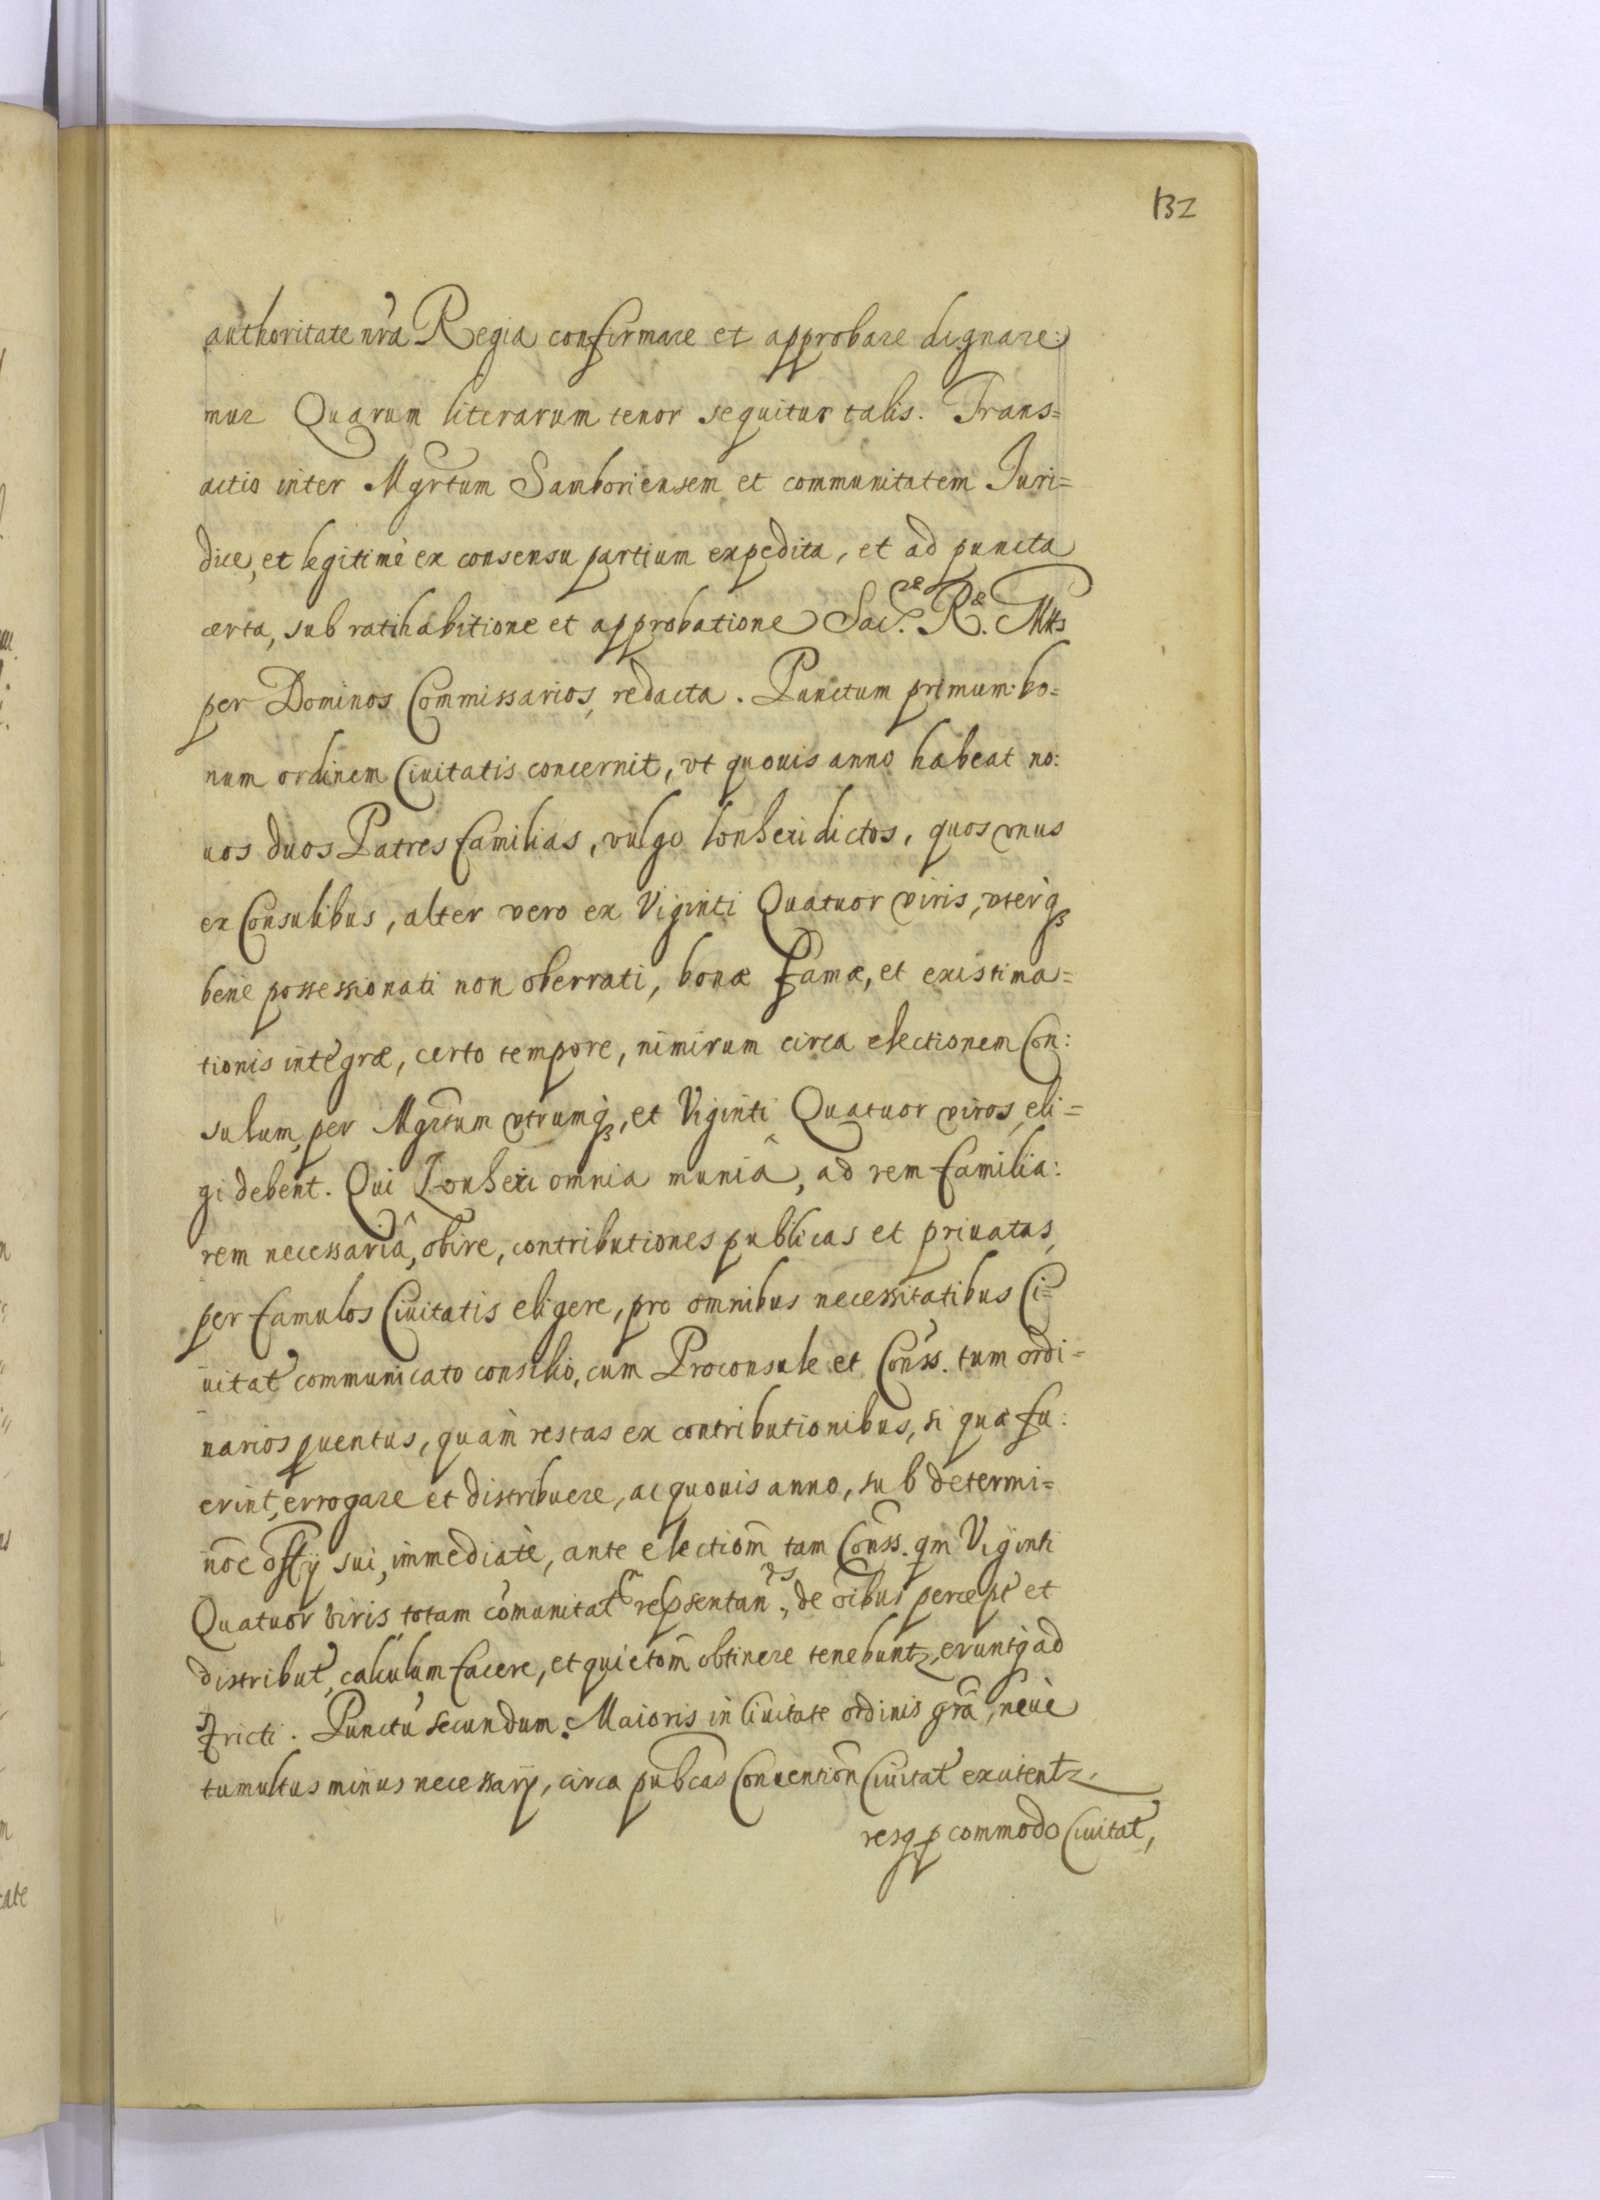 132
authoritate nr̃a Regia confirmare et approbare dignare:
mur Quarum literarum tenor sequitur talis. Trans=
actio inter Mgr̃tum Samboriensem et communitatem Juri=
dice, et legitimè ex consensu partium expedita, et ad puncta
certa, sub ratihabitione et approbatione Sac.ræ R.æ Mttis
per Dominos Commissarios, redacta. Punctum primum: bo=
num ordinem Ciuitatis concernit, vt quouis anno habeat no:
uos duos Patres familias, vulgo lonheri dictos, quos vnus
ex Consulibus, alter vero ex Viginti Quatuor viris, vterq̃
bene possessionati non oberrati, bonæ famæ, et existima=
tionis integræ, certo tempore, nimirum circa electionem Con:
sulum, per Mgr̃tum vtrumq̃, et Viginti Quatuor viros, eli=
gi debent. Qui Lonheri omnia muniâ, ad rem familia:
rem necessariâ, obire, contributiones publicas et priuatas,
per famulos Ciuitatis eligere, pro omnibus necessitatibus Ci=
uitat̃ communicato consilio, cum Proconsule et Cons̃s. tum ordi=
narios puentus, quàm restas ex contributionibus, si quæ fu:
erint, errogare et distribuere, ac quouis anno, sub determi=
nõe offij sui, immediatè, ante electiom̃ tam Cons̃s. qm̃ Viginti
Quatuor viris, totam cõmunitat̃em repsentan.̃es, de õibus percept̃ et
distribut̃, calculum facere, et quietom̃ obtinere tenebuntr, eruntq̃ ad
stricti. Punctũ secundum. Maioris in Ciuitate ordinis grã, neue
tumultus minus necessarij, circa publ̃cas Conuention̄ Ciuitat̃ excitentr.
resq̃ p commodo Ciuitat̃,